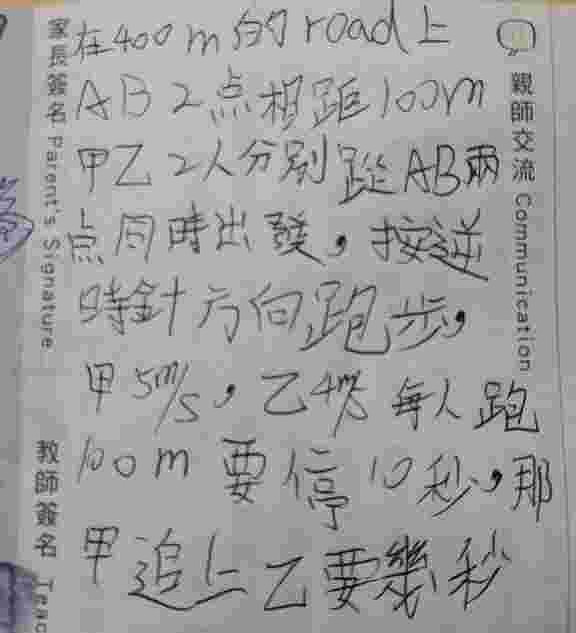 家長簽名 Parent's Signature
教師簽名 Teac
在400m的road上
AB2点相距100m
甲乙2人分别蹤AB兩
点同時出發，按逆
時針方向跑步，
甲5m/s，乙4m/s每人跑
100m要停10秒，那
甲追上乙要幾秒
親師交流 Communication